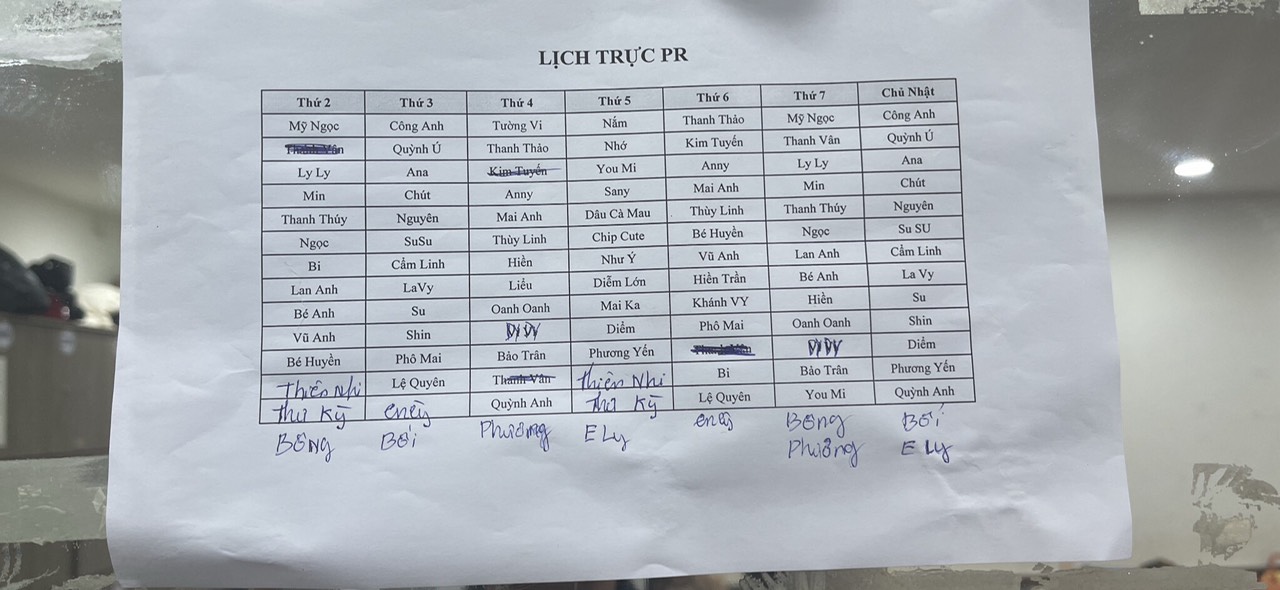 LỊCH TRỰC PR
Thứ 2 Thứ 3 Thứ 4 Thứ 5 Thứ 6 Thứ 7 Chủ Nhật
Mỹ Ngọc Công Anh Tường Vi Nắm Thanh Thảo Mỹ Ngọc Công Anh
Thanh Vân Quỳnh Ú Thanh Thảo Nhớ Kim Tuyến Thanh Vân Quỳnh Ú
Ly Ly Ana Kim Tuyến You Mi Anny Ly Ly Ana
Min Chút Anny Sany Mai Anh Min Chút
Thanh Thúy Nguyên Mai Anh Dâu Cà Mau Thùy Linh Thanh Thúy Nguyên
Ngọc SuSu Thùy Linh Chip Cute Bé Huyền Ngọc Su SU
Bi Cẩm Linh Hiền Như Ý Vũ Anh Lan Anh Cẩm Linh
Lan Anh LaVy Liểu Diễm Lớn Hiền Trần Bé Anh La Vy
Bé Anh Su Oanh Oanh Mai Ka Khánh VY Hiền Su
Vũ Anh Shin Diểm Phô Mai Oanh Oanh Shin
Bé Huyền Phô Mai Bảo Trân Phương Yến Diểm
Thiên Nhi Lệ Quyên Thanh Vân Thiên Nhi Bi Bảo Trân Phương Yến
Thư Kỳ Quỳnh Anh Thư Kỳ Lệ Quyên You Mi Quỳnh Anh
Bông Bơi Phương E Ly Bông Bơi
Phương E Ly